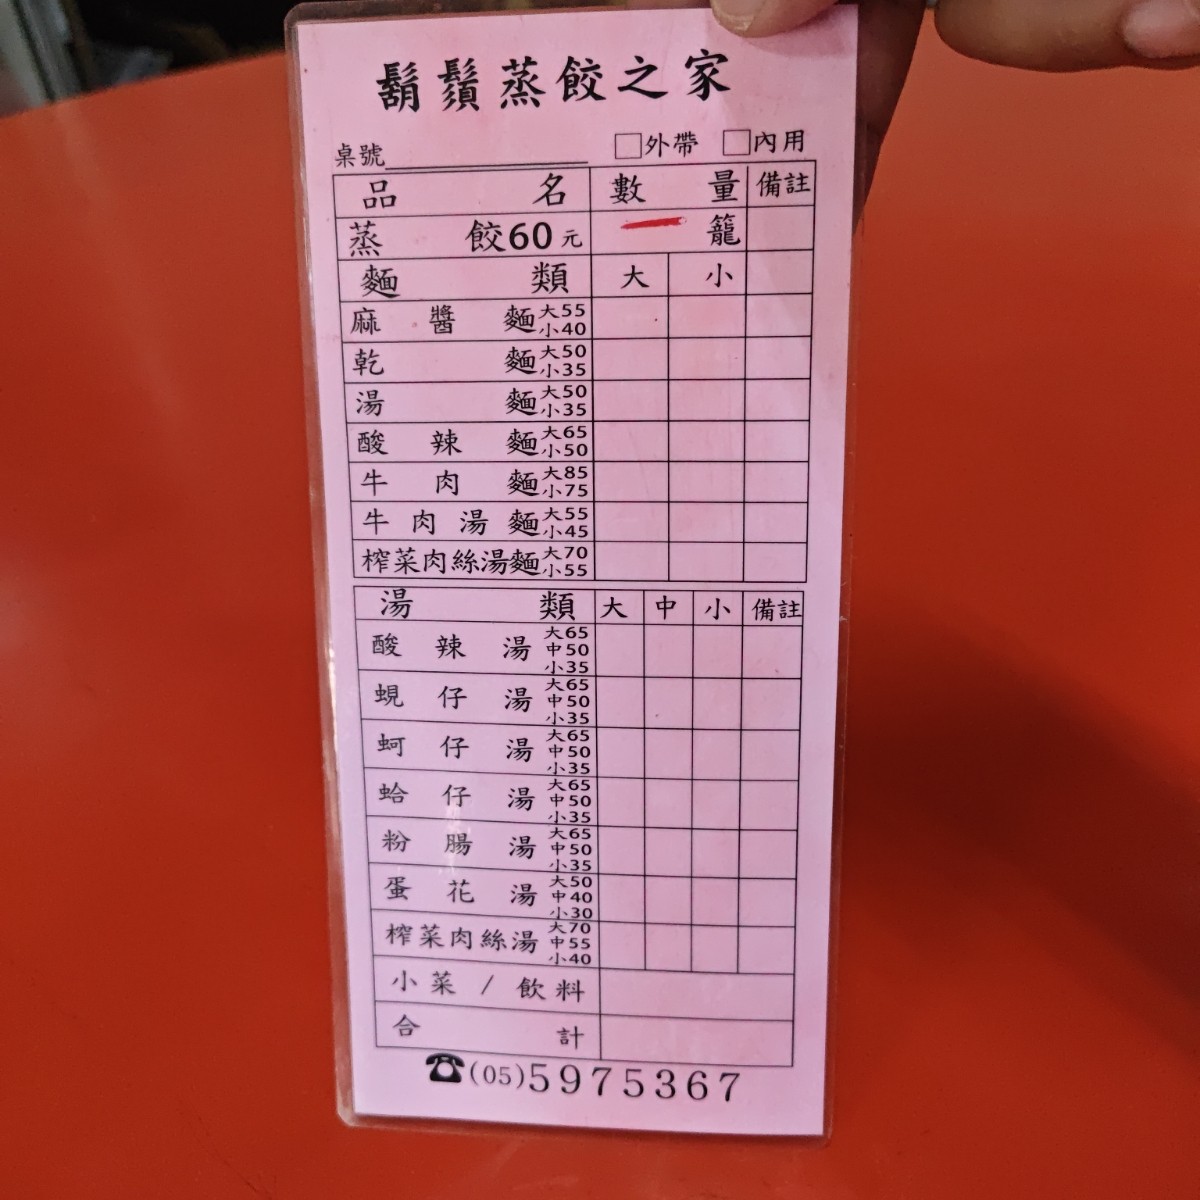 鬍鬚蒸餃之家
桌號 □外帶 □內用
品名 數量 備註
蒸餃60元 一 籠
麵類 大 小
麻醬麵 大55 小40
乾麵 大50 小35
湯麵 大50 小35
酸辣麵 大65 小50
牛肉麵 大85 小75
牛肉湯麵 大55 小45
榨菜肉絲湯麵 大70 小55
湯類 大 中 小 備註
酸辣湯 大65 中50 小35
蜆仔湯 大65 中50 小35
蚵仔湯 大65 中50 小35
蛤仔湯 大65 中50 小35
粉腸湯 大65 中50 小35
蛋花湯 大50 中40 小30
榨菜肉絲湯 大70 中55 小40
小菜/飲料
合計
☎(05)5975367